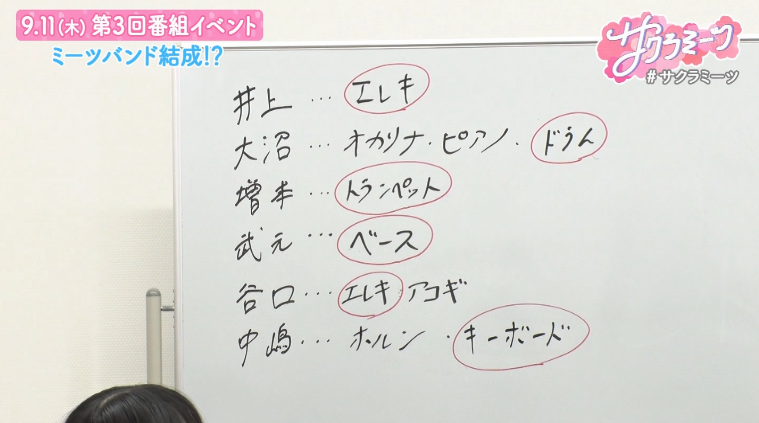 9.11(木) 第3回番組イベント
ミーツバンド結成!?
サクラミーツ
#サクラミーツ
井上 … エレキ
大沼 … オカリナ・ピアノ・ドラム
増本 … トランペット
武元 … ベース
谷口 … エレキ アコギ
中嶋 … ホルン・キーボード